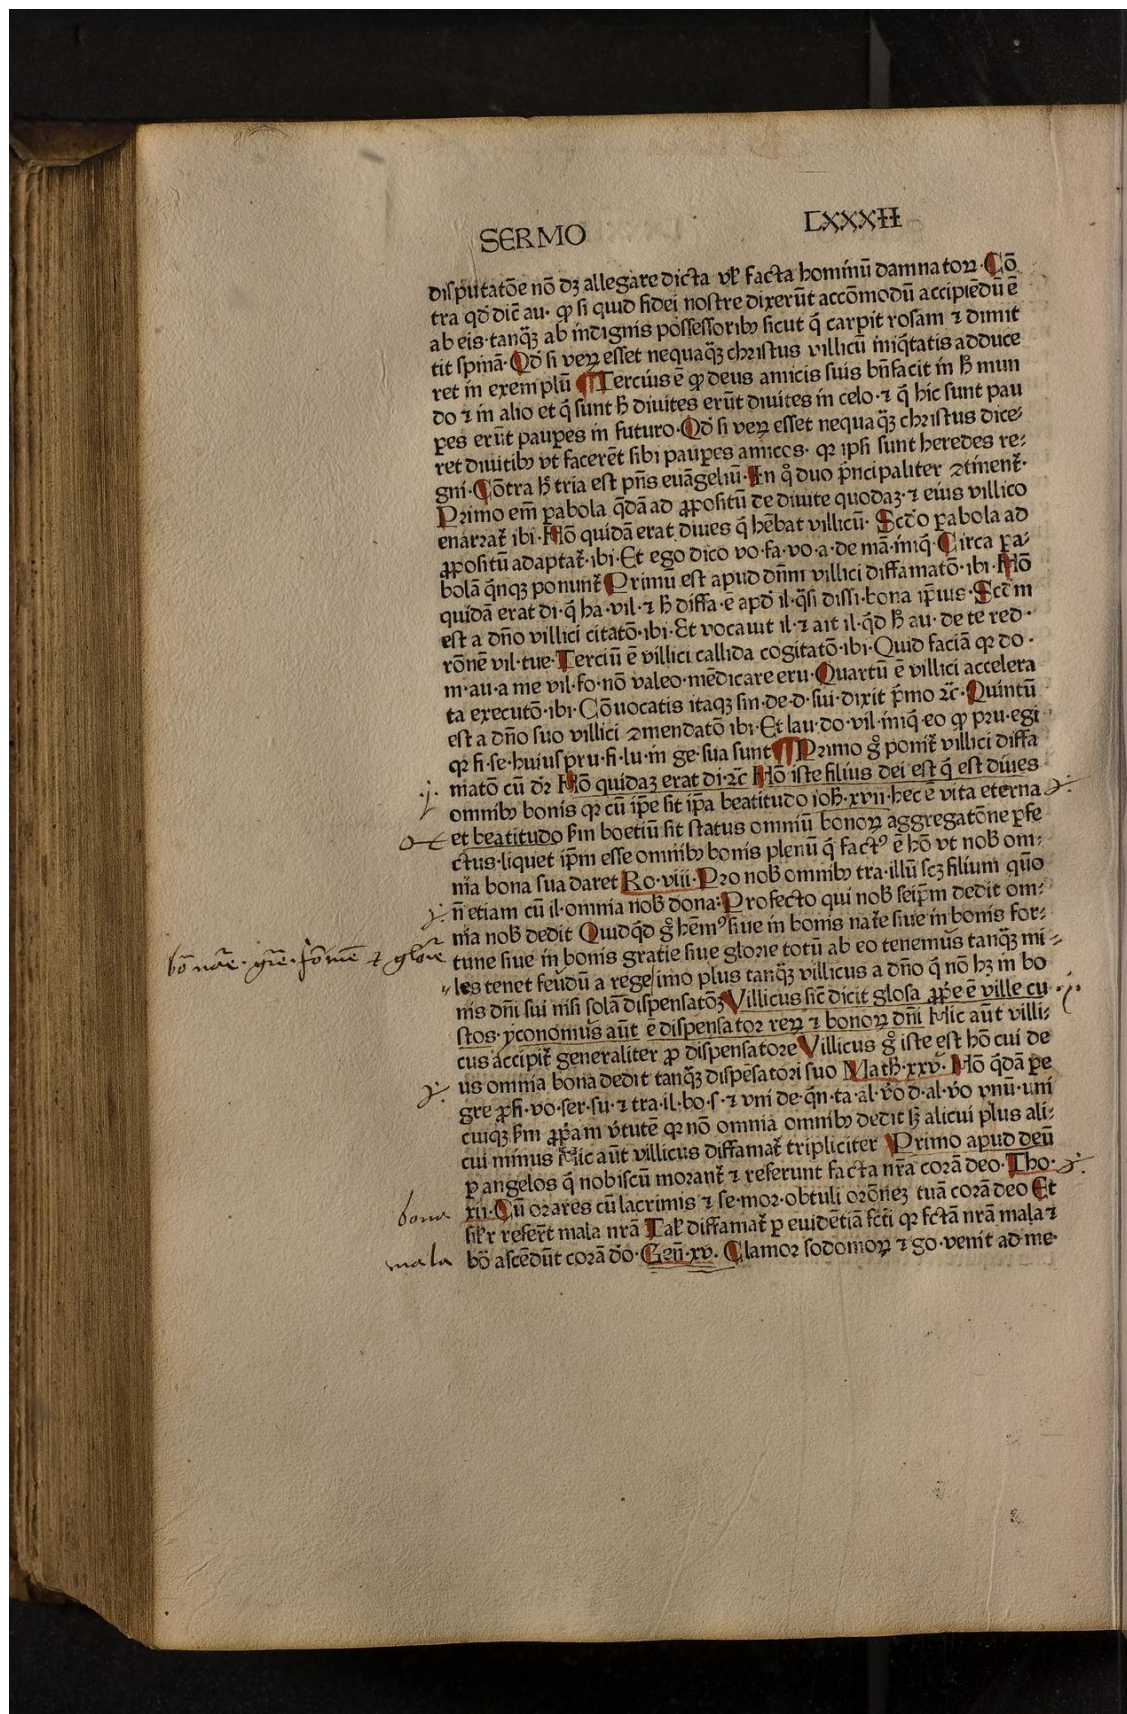 SERMO LXXXII
disputatōe nō dꝫ allegare dicta vƚ facta hominū damnatoꝝ· Cō
tra qd̄ dic̄ au· ꝙ si quid fidei nostre dixerūt accōmodū accipiēdū ē
ab eis· tanq̄ꝫ ab indignis possessoribꝰ sicut q̄ carpit rosam ⁊ dimit
tit spinā· Qd̄ si veꝝ esset nequaq̄ꝫ christus villicū iniq̄tatis adduce
ret in exemplū ¶ Tercius ē ꝙ deus amicis suis bn̄facit in hͦ mun
do ⁊ in alio et q̄ sunt hͦ diuites erūt diuites in celo· ⁊ q̄ hic sunt pau
ꝑes erūt pauꝑes in futuro· Qd̄ si veꝝ esset nequaq̄ꝫ christus dice⸗
ret diuitibꝰ vt facerēt sibi pauꝑes amicos· qꝛ ipsi sunt heredes re⸗
gni· Cōtra hͦ tria est pn̄s euāgeliū· In qͦ duo p̄ncipaliter ꝯtinent̄·
Primo em̄ ꝑabola q̄dā ad ꝓpositū de diuite quodaꝫ· ⁊ eius villico
enarrat̄ ibi· Hō quidā erat diues q̄ hēbat villicū· Scd̄o ꝑabola ad
ꝓpositū adaptat̄· ibi· Et ego dico vo· fa· vo· a· de mā· iniq̄· Circa ꝑa⸗
bolā q̄nqꝫ ponunt̄ Primū est apud dn̄m villici diffamatō· ibi· Hō
quidā erat di· q̄ ha· vil· ⁊ hͦ diffa· ē apd̄ il· q̄si dissi· bona ip̄ius· Scd̄m
est a dn̄o villici citatō· ibi· Et vocauit il· ⁊ ait il· q̄d hͦ au· de te red·
rōnē vil· tue· Terciū ē villici callida cogitatō· ibi· Quid faciā qꝛ do·
m· au· a me vil· fo· nō valeo· mēdicare eru· Quartū ē villici accelera
ta executō· ibi· Cōuocatis itaqꝫ sin· de· d· sui· dixit p̄mo ⁊c̄· Quintū
est a dn̄o suo villici ꝯmendatō ibi· Et lau· do· vil· iniq̄· eo ꝙ pru· egi
qꝛ fi· se· huius pru· fi· lu· in ge· sua sunt ¶ Primo gͦ ponit̄ villici diffa
matō cū dꝛ̄ Hō quidaꝫ erat di· ⁊c̄ Hō iste filius dei est q̄ est diues
omnibꝰ bonis qꝛ cū ip̄e sit ip̄a beatitudo ioh̄· xvii· hec ē vita eterna
et beatitudo ẜm boetiū sit status omniū bonoꝝ aggregatōne ꝑfe
ctus· liquet ip̄m esse omnibꝰ bonis plenū q̄ factꝰ ē hō vt nob̄ om⸗
nia bona sua daret Ro· viii· Pro nob̄ omnibꝰ tra· illū scꝫ filium quō
n̄ etiam cū il· omnia nob̄ dona· Profecto qui nob̄ seip̄m dedit om⸗
nia nob̄ dedit Quidq̄d gͦ hēmꝰ siue in bonis nat̄e siue in bonis for⸗
bō nāe· grē· fōrnē ⁊ glorē
tune siue in bonis gratie siue glorie totū ab eo tenemus tanq̄ꝫ mi⸗
les tenet feudū a rege imo plus tanq̄ꝫ villicus a dn̄o q̄ nō hꝫ in bo
nis dn̄i sui nisi solā dispensatōꝫ Villicus sic̄ dicit glosa ꝓp̄e ē ville cu
stos· yconomus aūt ē dispensator reꝝ ⁊ bonoꝝ dn̄i Hic aūt villi⸗
cus accipit̄ generaliter ꝓ dispensatore Villicus gͦ iste est hō cui de
us omnia bona dedit tanq̄ꝫ dispēsatori suo Math̄· xxv· Hō q̄dā ꝑe
gre ꝓfi· vo· ser· su· ⁊ tra· il· bo· s· ⁊ vni de· q̄n· ta· al· v̄o d· al· v̄o vnū· uni
cuiqꝫ ẜm ꝓp̄am v̄tutē qꝛ nō omnia omnibꝰ dedit sꝫ alicui plus ali⸗
cui minus Hic aūt villicus diffamat̄ tripliciter Primo apud deū
ꝑ angelos q̄ nobiscū morant̄ ⁊ referunt facta nr̄a corā deo· Tho·
bona
xii· Cū orares cū lacrimis ⁊ se· mor· obtuli orōneꝫ tuā corā deo Et
sil̄r referēt mala nrā Tal̄ diffamat̄ ꝑ euidētiā fc̄ti qꝛ fctā nrā mala ⁊
mala
bō ascēdūt corā dō· Gen̄· xv· Clamor sodomoꝝ ⁊ go· venit ad me·